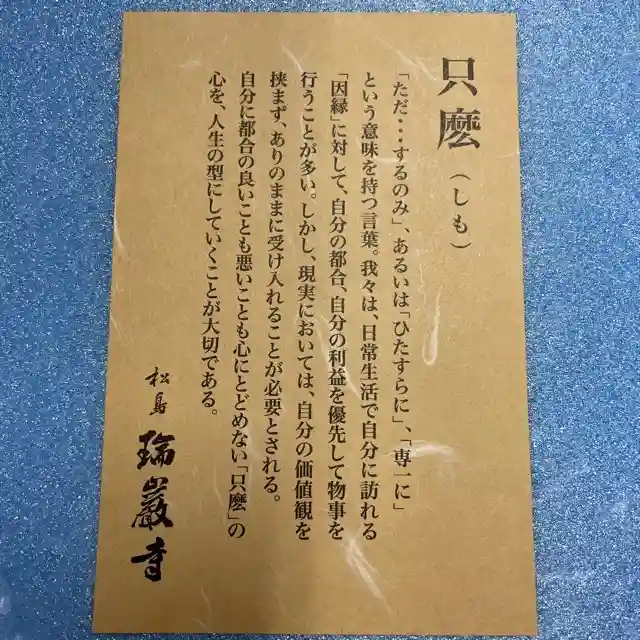 只麼（しも）
「ただ・・・するのみ」、あるいは「ひたすらに」、「専一に」
という意味を持つ言葉。我々は、日常生活で自分に訪れる
「因縁」に対して、自分の都合、自分の利益を優先して物事を
行うことが多い。しかし、現実においては、自分の価値観を
挟まず、ありのままに受け入れることが必要とされる。
自分に都合の良いことも悪いことも心にとどめない「只麼」の
心を、人生の型にしていくことが大切である。
松島
瑞巖寺